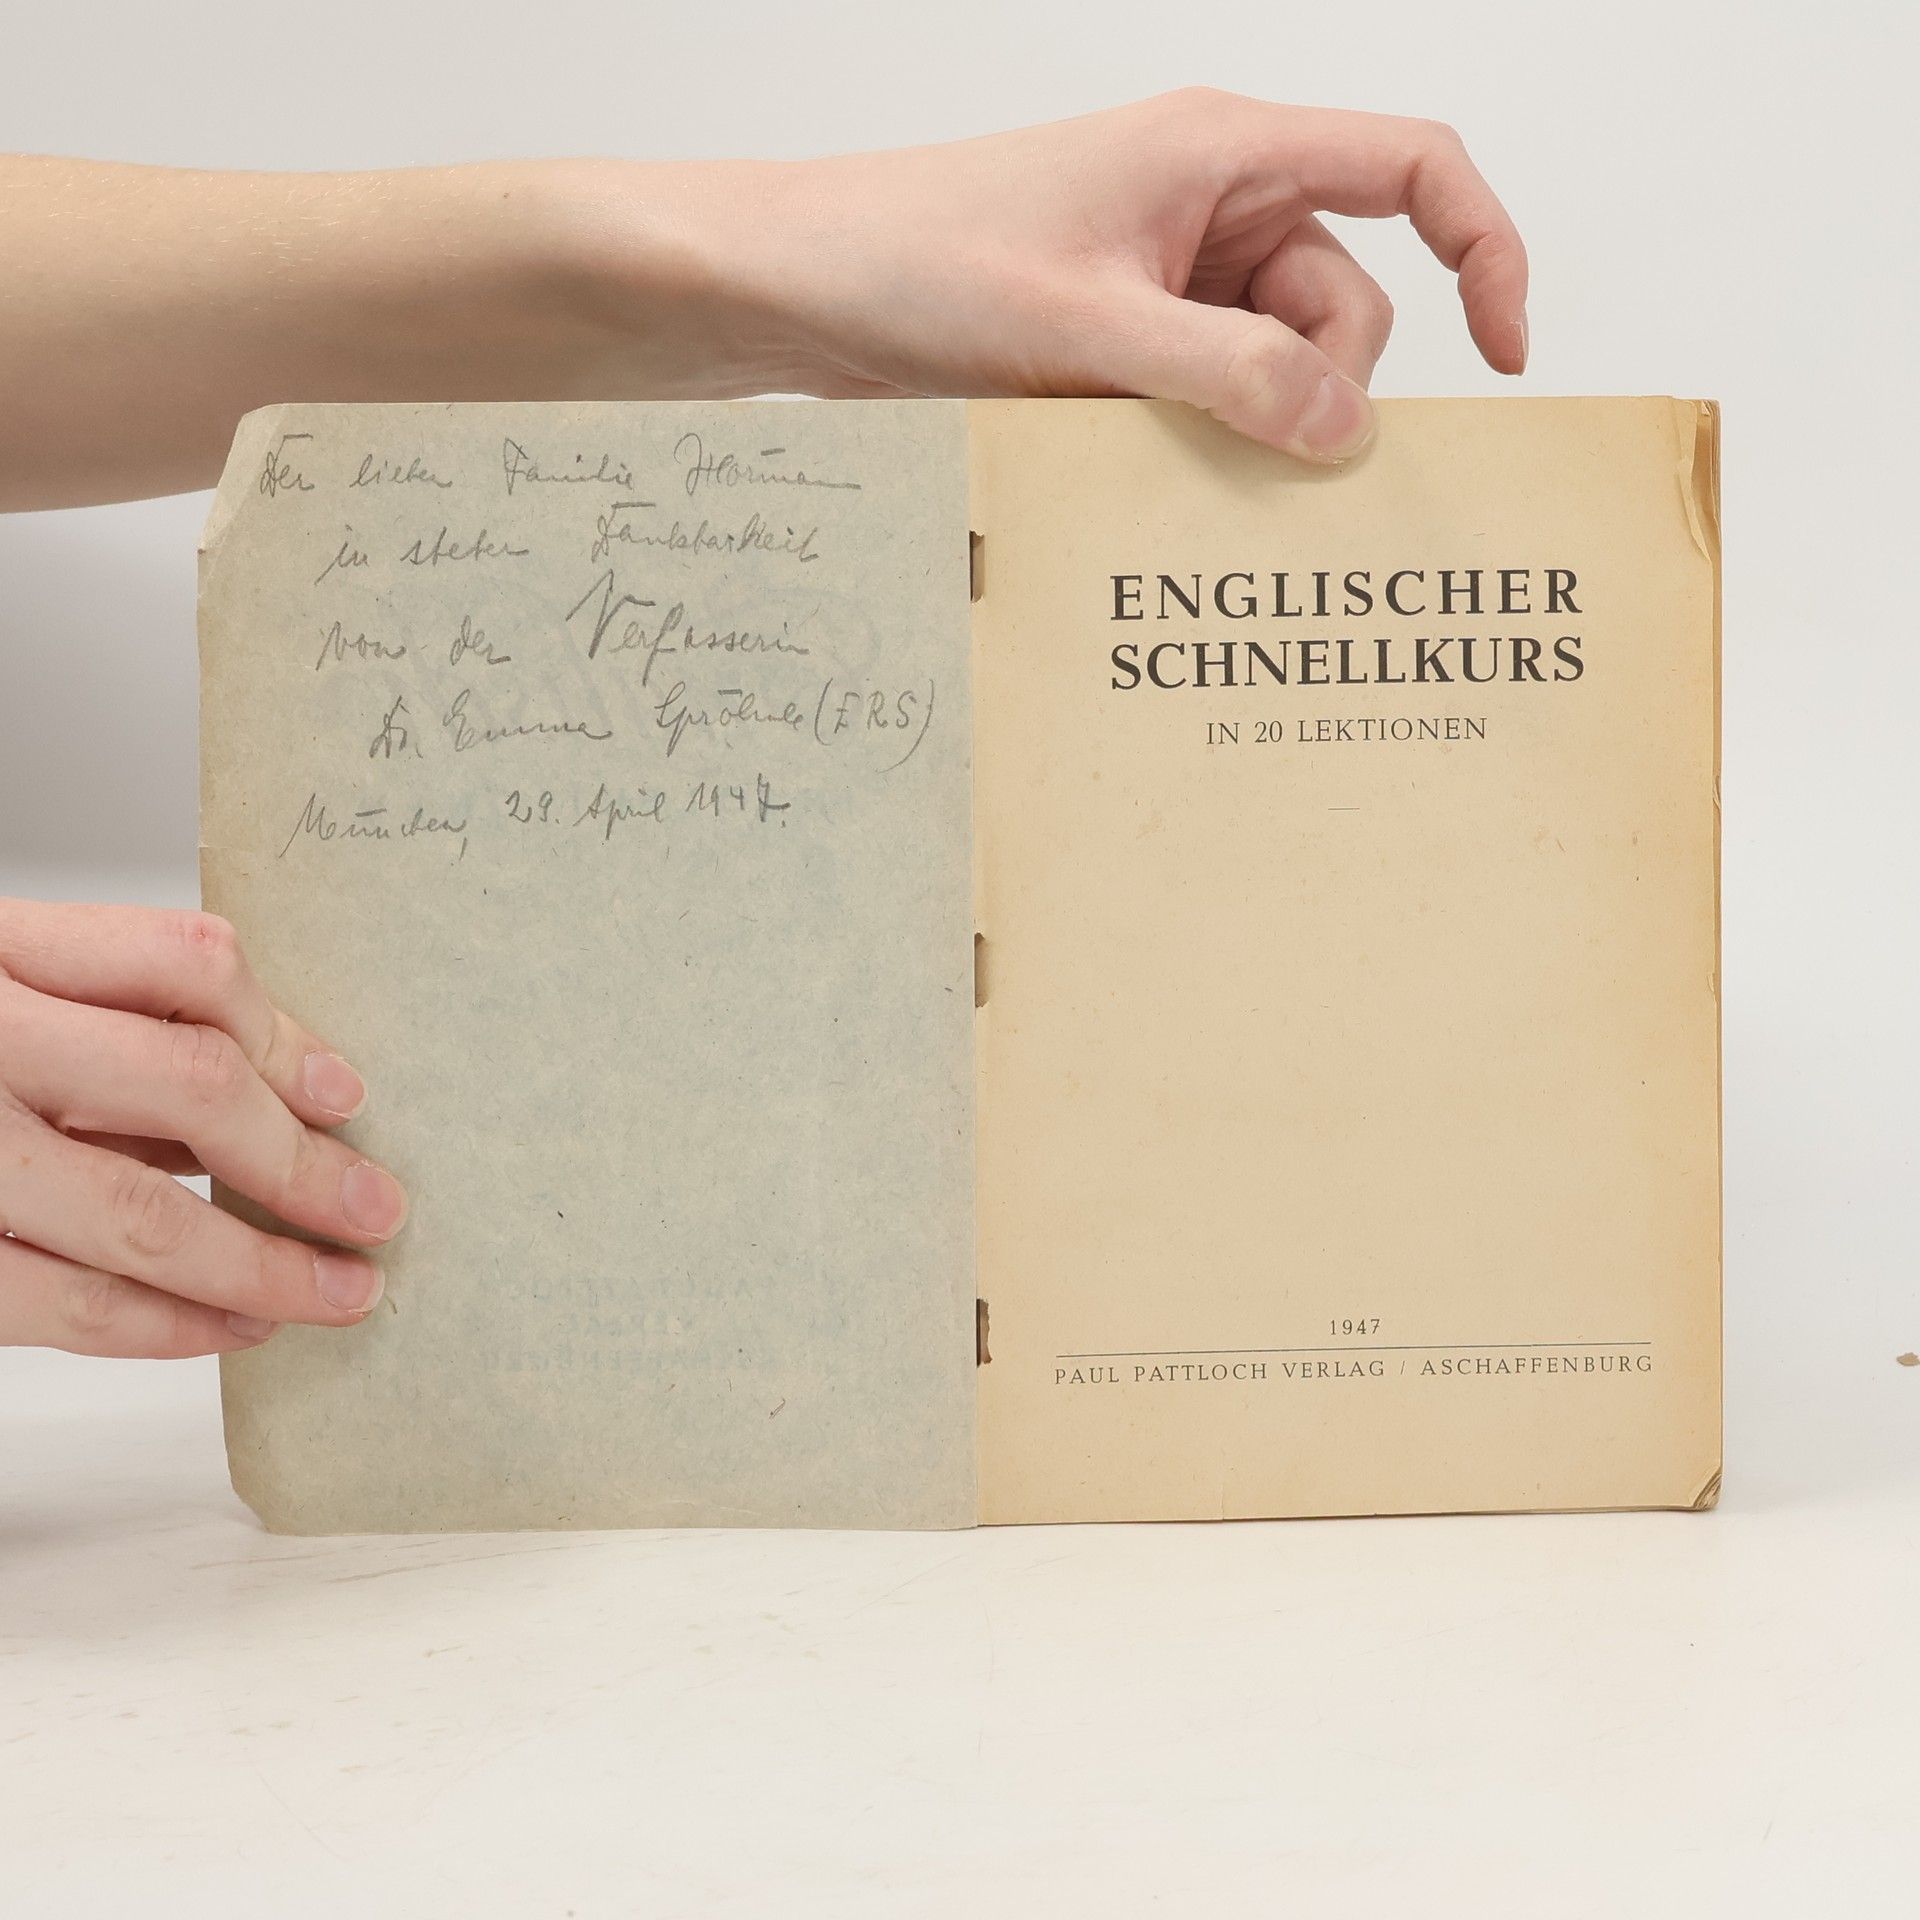 Der lieben Familie
in steter Dankbarkeit
von der Verfasserin
Dr. Emma Spröhnle (ERS)
München, 29. April 1947.
ENGLISCHER
SCHNELLKURS
IN 20 LEKTIONEN
1947
PAUL PATTLOCH VERLAG / ASCHAFFENBURG